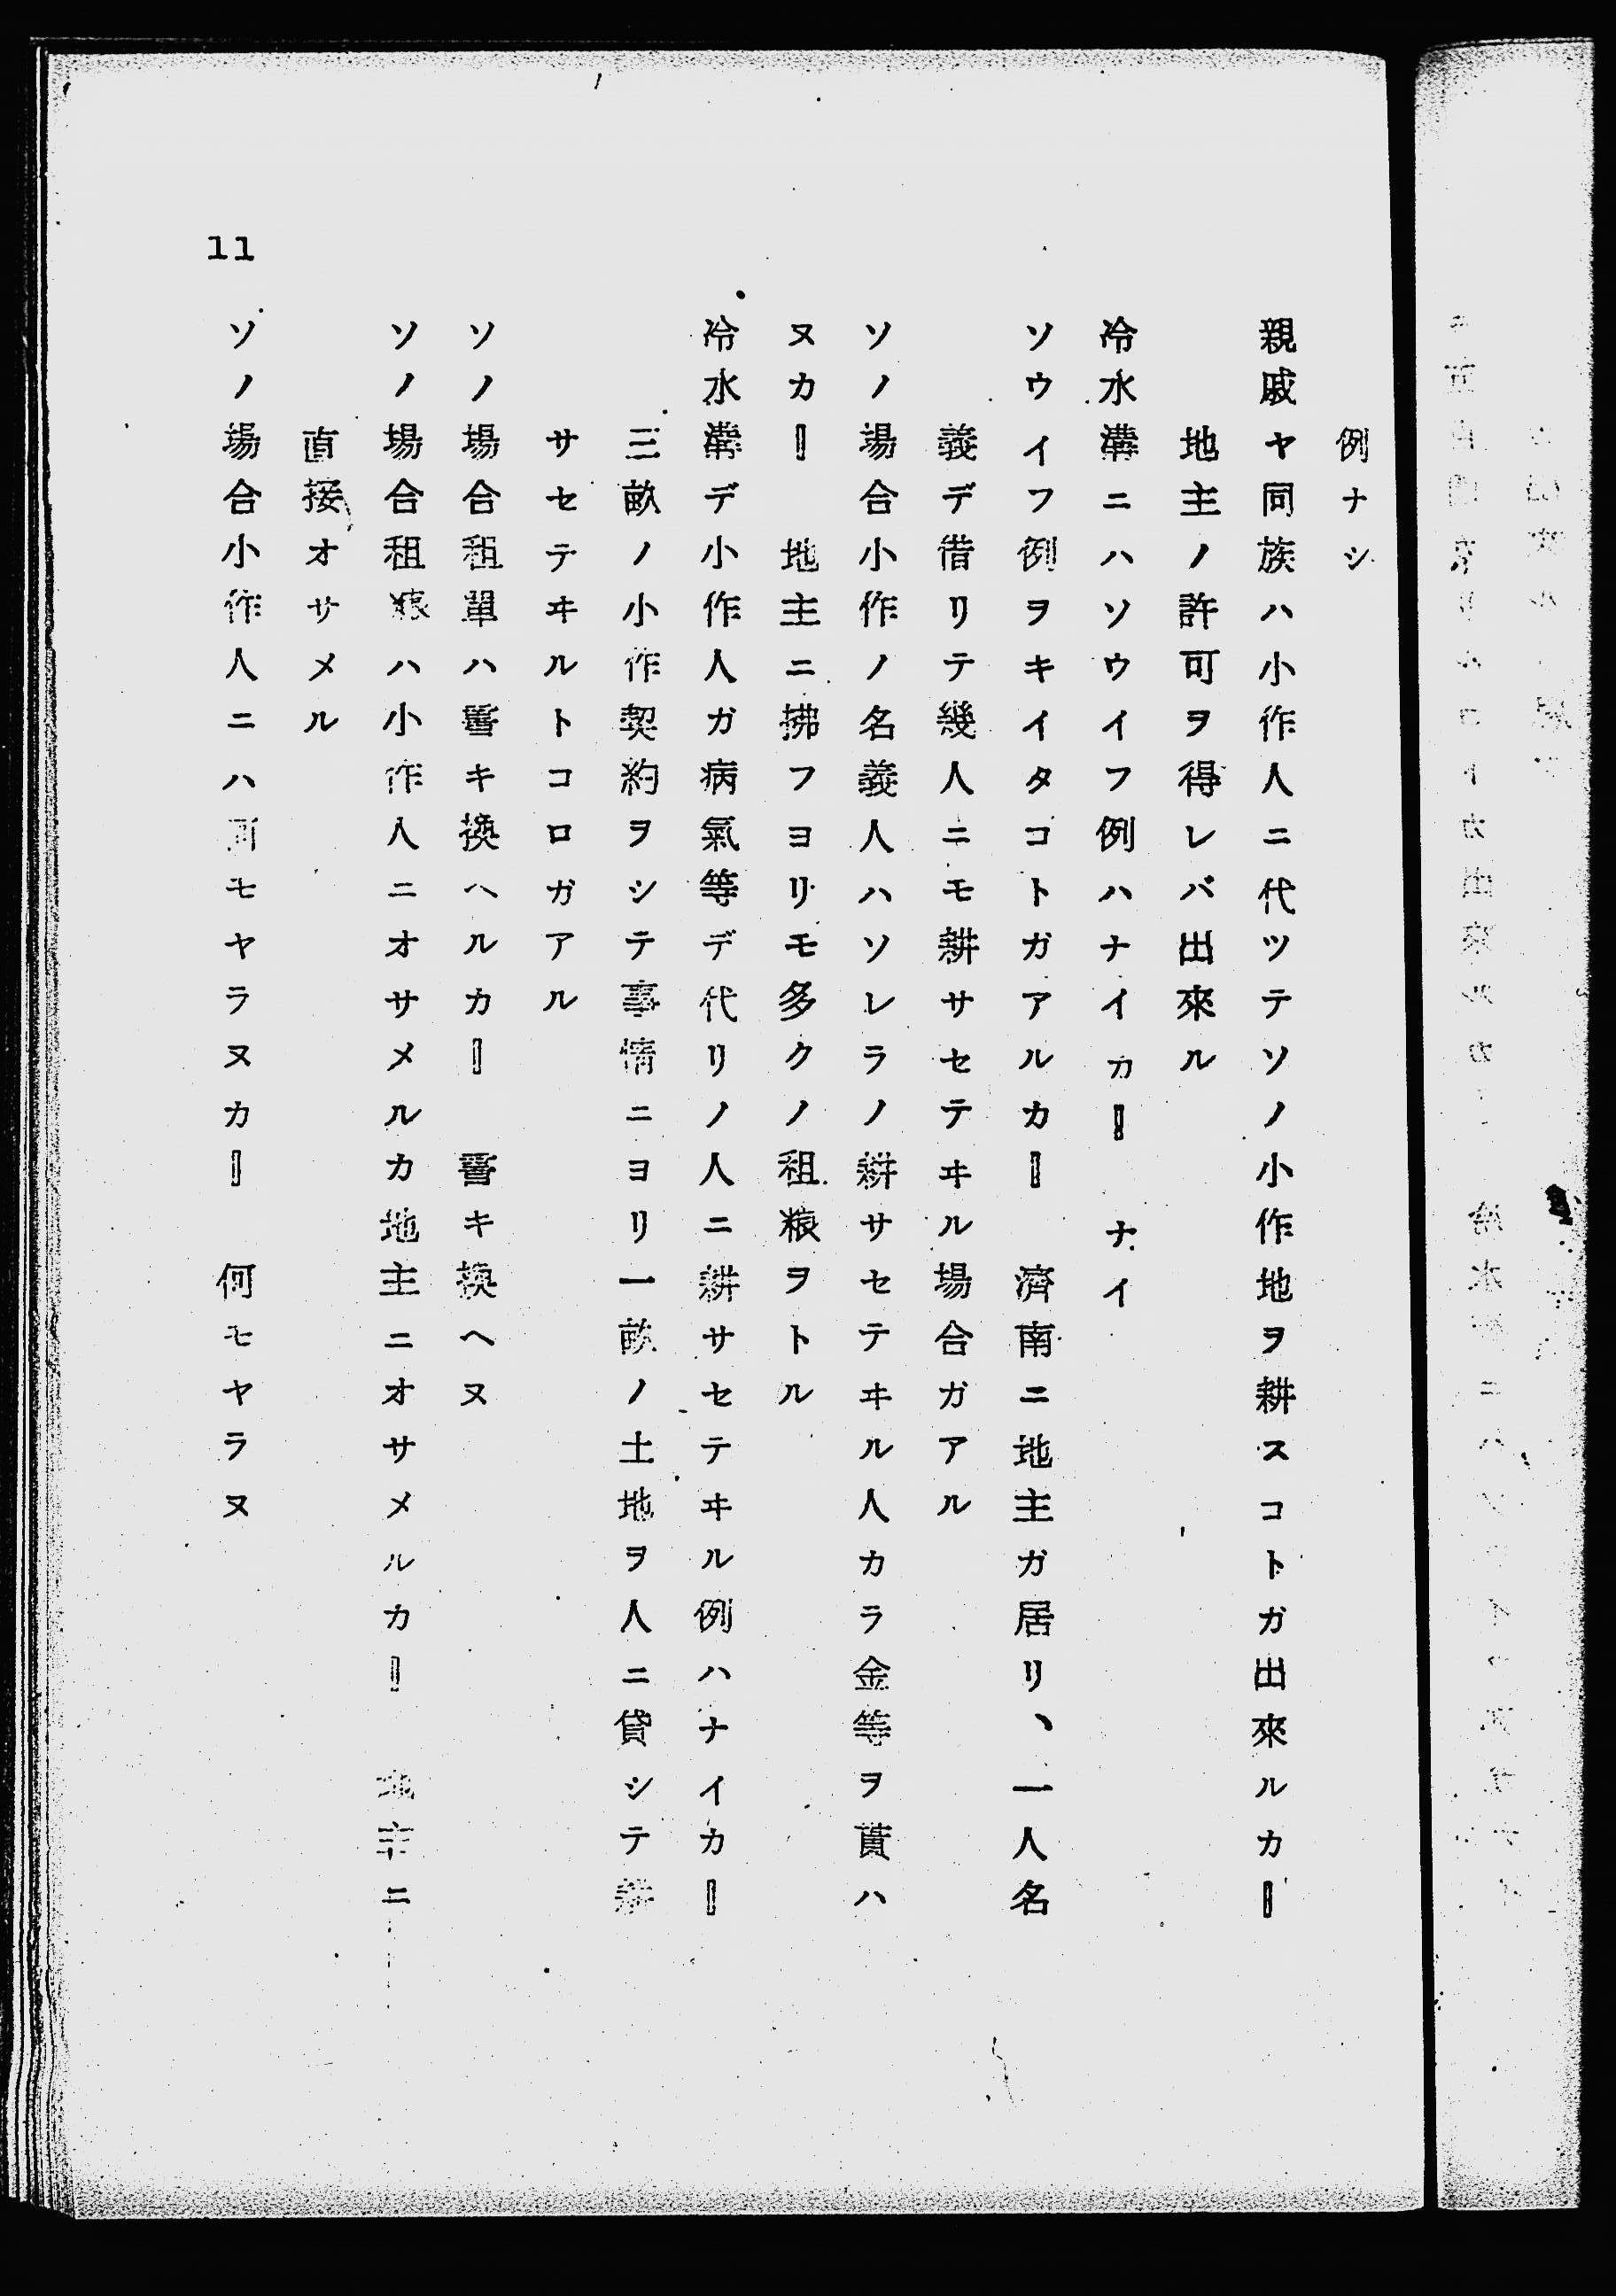 例ナシ
親戚ヤ同族ハ小作人ニ代ツテソノ小作地ヲ耕スコトガ出來ルカ―
地主ノ許可ヲ得レバ出來ル
冷水溝ニハソウイフ例ハナイカ― ナイ
ソウイフ例ヲキイタコトガアルカ― 濟南ニ地主ガ居リ、一人名
義デ借リテ幾人ニモ耕サセテヰル場合ガアル
ソノ場合小作ノ名義人ハソレラノ耕サセテヰル人カラ金等ヲ貰ハ
ヌカ― 地主ニ拂フヨリモ多クノ租粮ヲトル
冷水溝デ小作人ガ病氣等デ代リノ人ニ耕サセテヰル例ハナイカ―
三畝ノ小作契約ヲシテ事情ニヨリ一畝ノ土地ヲ人ニ貸シテ耕
サセテヰルトコロガアル
ソノ場合租單ハ書キ換ヘルカ― 書キ換ヘヌ
ソノ場合租粮ハ小作人ニオサメルカ地主ニオサメルカ― 地主ニ
直接オサメル
ソノ場合小作人ニハ何モヤラヌカ― 何モヤラヌ
11